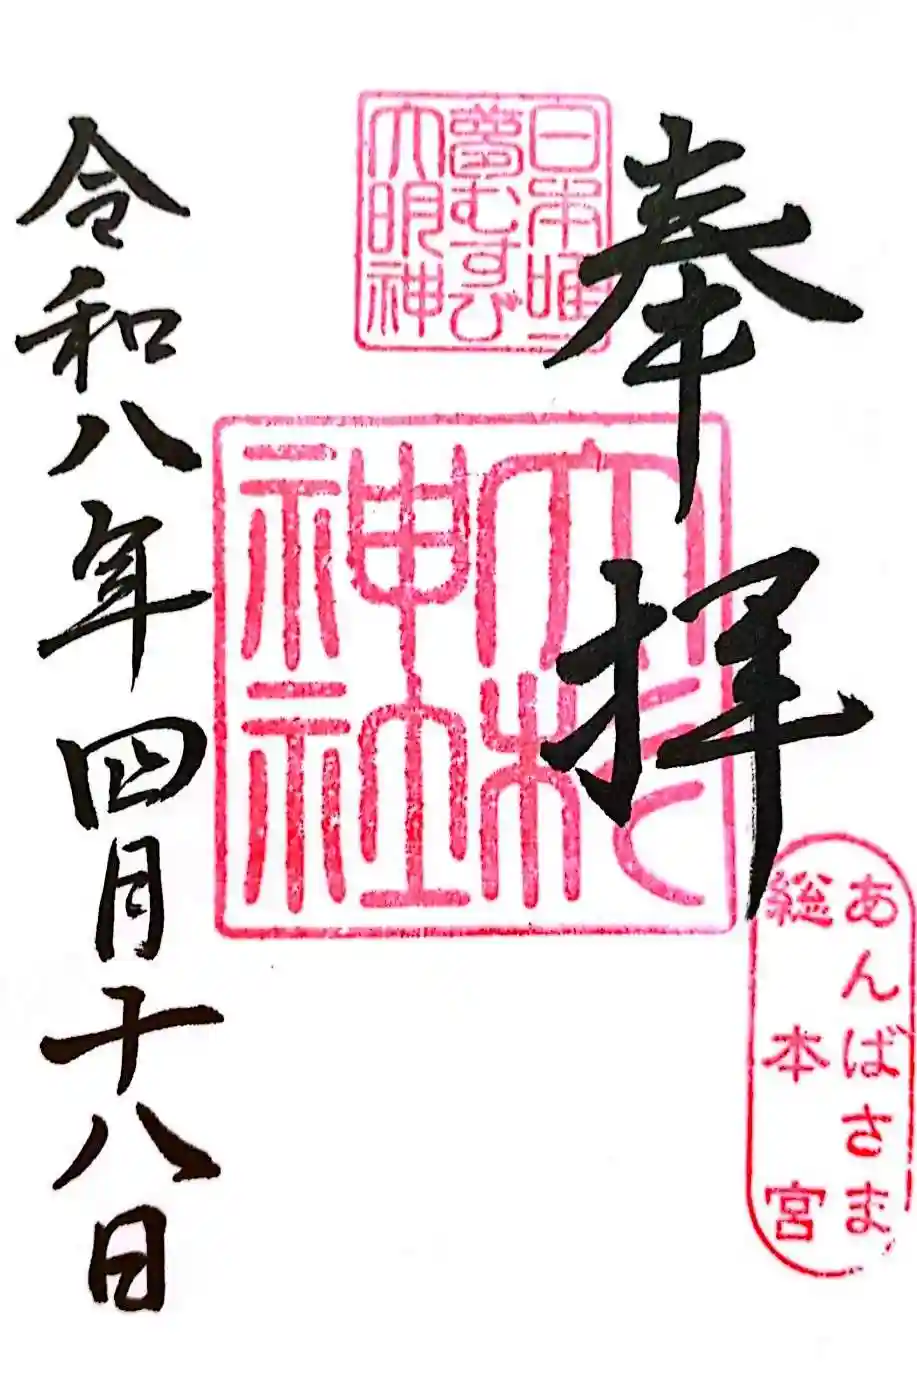 奉拝
日本唯一
夢むすび
大明神
大杉
神社
あんばさま
総本宮
令和八年四月十八日